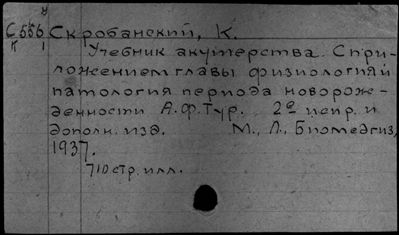 у
С556 Скробанский, К.
К 1
Учебник акушерства. С при-
ложением главы физиология и
патология периода новорож-
денности А.Ф.Тур. 2е испр. и
дополн. изд. М., Л., Биомедгиз,
1937.
710 стр. илл.